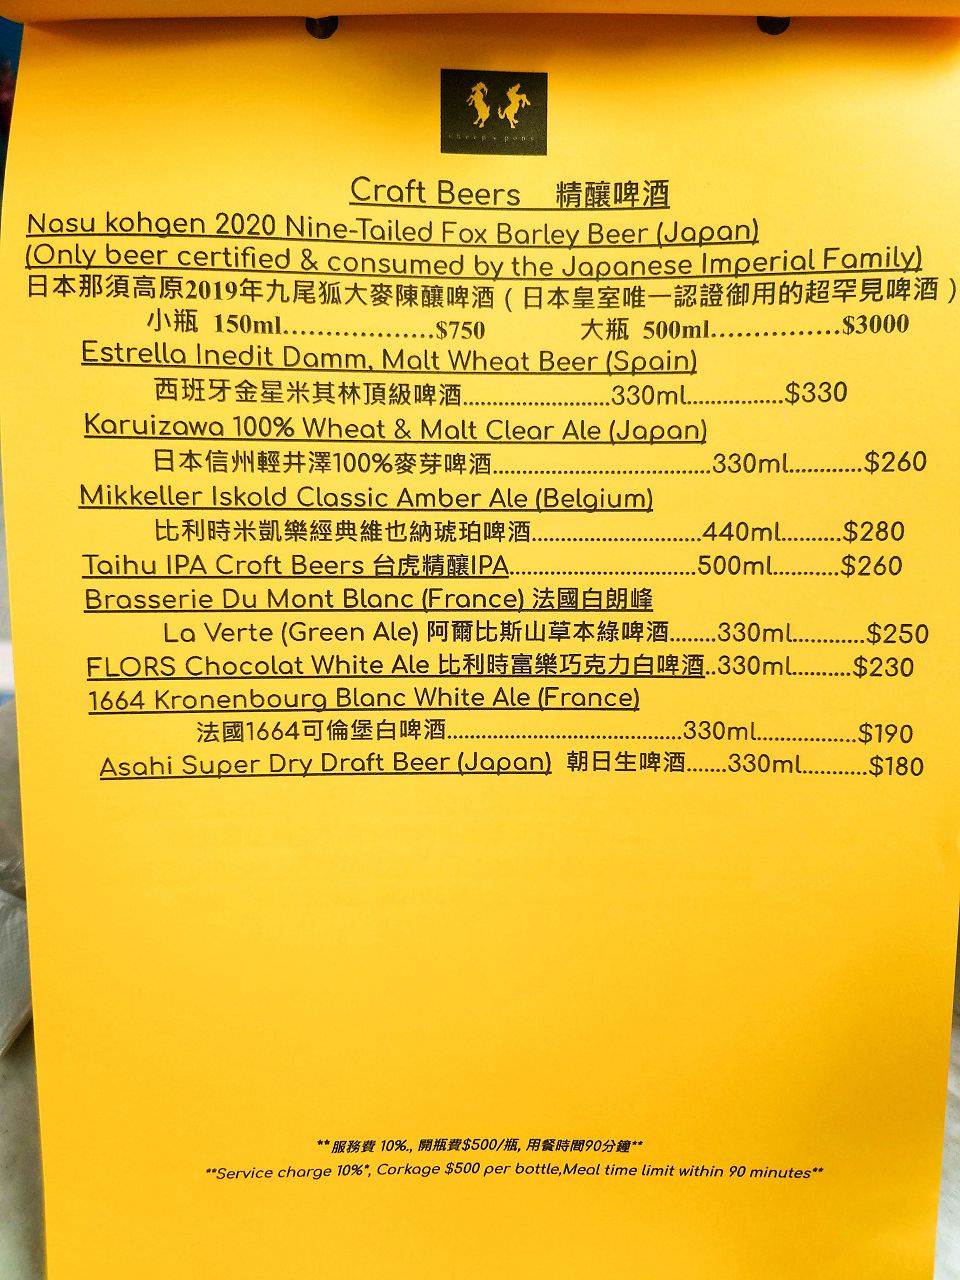 sheep & pony
Craft Beers 精釀啤酒
Nasu kohgen 2020 Nine-Tailed Fox Barley Beer (Japan)
(Only beer certified & consumed by the Japanese Imperial Family)
日本那須高原2019年九尾狐大麥陳釀啤酒（日本皇室唯一認證御用的超罕見啤酒）
小瓶 150ml................$750 大瓶 500ml................$3000
Estrella Inedit Damm, Malt Wheat Beer (Spain)
西班牙金星米其林頂級啤酒.......................330ml...............$330
Karuizawa 100% Wheat & Malt Clear Ale (Japan)
日本信州輕井澤100%麥芽啤酒..................................330ml...........$260
Mikkeller Iskold Classic Amber Ale (Belgium)
比利時米凱樂經典維也納琥珀啤酒..........................440ml..........$280
Taihu IPA Craft Beers 台虎精釀IPA.............................500ml..........$260
Brasserie Du Mont Blanc (France) 法國白朗峰
La Verte (Green Ale) 阿爾比斯山草本綠啤酒.......330ml...........$250
FLORS Chocolat White Ale 比利時富樂巧克力白啤酒..330ml.........$230
1664 Kronenbourg Blanc White Ale (France)
法國1664可倫堡白啤酒....................................330ml...............$190
Asahi Super Dry Draft Beer (Japan) 朝日生啤酒......330ml..........$180
**服務費 10%., 開瓶費$500/瓶, 用餐時間90分鐘**
**Service charge 10%*, Corkage $500 per bottle,Meal time limit within 90 minutes**